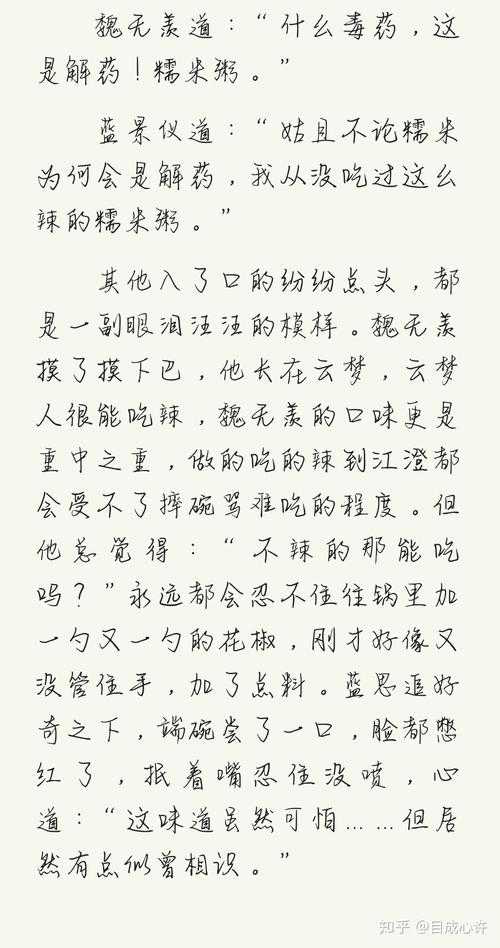 魏无羡道：“什么毒药，这
是解药！糯米粥。”
蓝景仪道：“姑且不论糯米
为何会是解药，我从没吃过这么
辣的糯米粥。”
其他入了口的纷纷点头，都
是一副眼泪汪汪的模样。魏无羡
摸了摸下巴，他长在云梦，云梦
人很能吃辣，魏无羡的口味更是
重中之重，做的吃的辣到江澄都
会受不了摔碗骂难吃的程度。但
他总觉得：“不辣的那能吃
吗？”永远都会忍不住往锅里加
一勺又一勺的花椒，刚才好像又
没管住手，加了点料。蓝思追好
奇之下，端碗尝了一口，脸都憋
红了，抿着嘴忍住没喷，心
道：“这味道虽然可怕……但居
然有点似曾相识。”
知乎 @目成心许